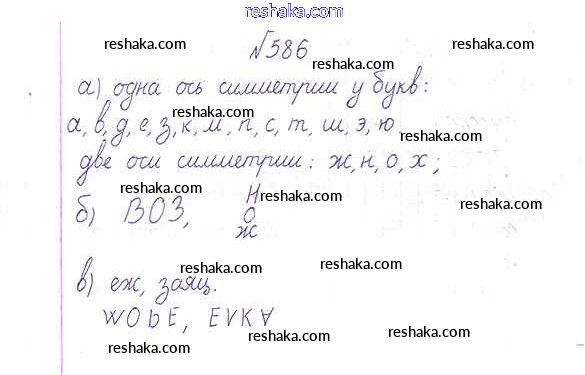 reshaka.com
№586
reshaka.com reshaka.com reshaka.com
а) одна ось симметрии у букв:
reshaka.com
а, в, д, е, з, к, м, п, с, т, ш, э, ю.
reshaka.com reshaka.com
две оси симметрии: ж, н, о, х;
reshaka.com reshaka.com reshaka.com
б) ВОЗ, Н
О
Ж
reshaka.com
reshaka.com reshaka.com
в) еж, заяц.
reshaka.com
WObE, EVKA
reshaka.com reshaka.com
reshaka.com reshaka.com